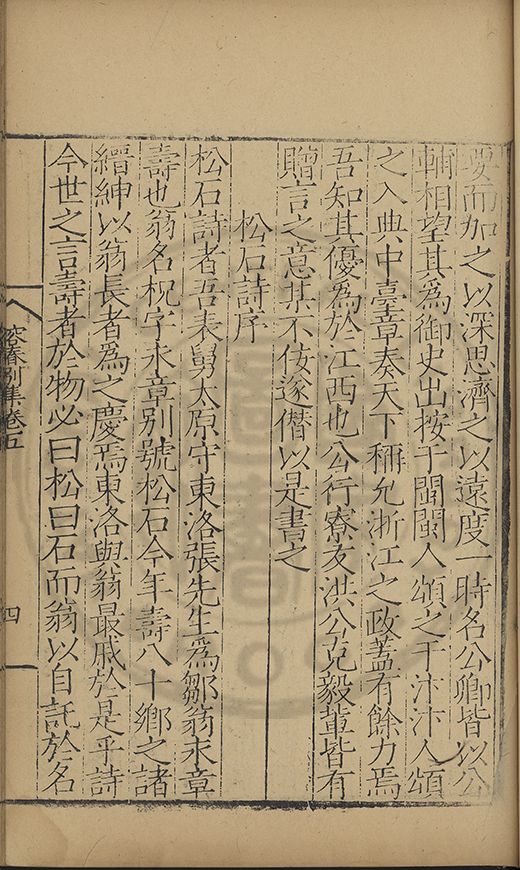 要而加之以深思濟之以遠度一時名公卿皆以公
輔相望其為御史出按于閩閩人頌之于汴汴人頌
之入典中臺章奏天下稱允浙江之政蓋有餘力焉
吾知其優為於江西也公行寮友洪公克毅軰皆有
贈言之意某不佞遂僭以是書之
松石詩序
松石詩者吾表舅太原守東洛張先生為鄒翁永章
壽也翁名棿字永章別號松石今年壽八十鄉之諸
縉紳以翁長者為之慶焉東洛與翁最戚於是乎詩
今世之言壽者於物必曰松曰石而翁以自託於名
容春別集卷五
四